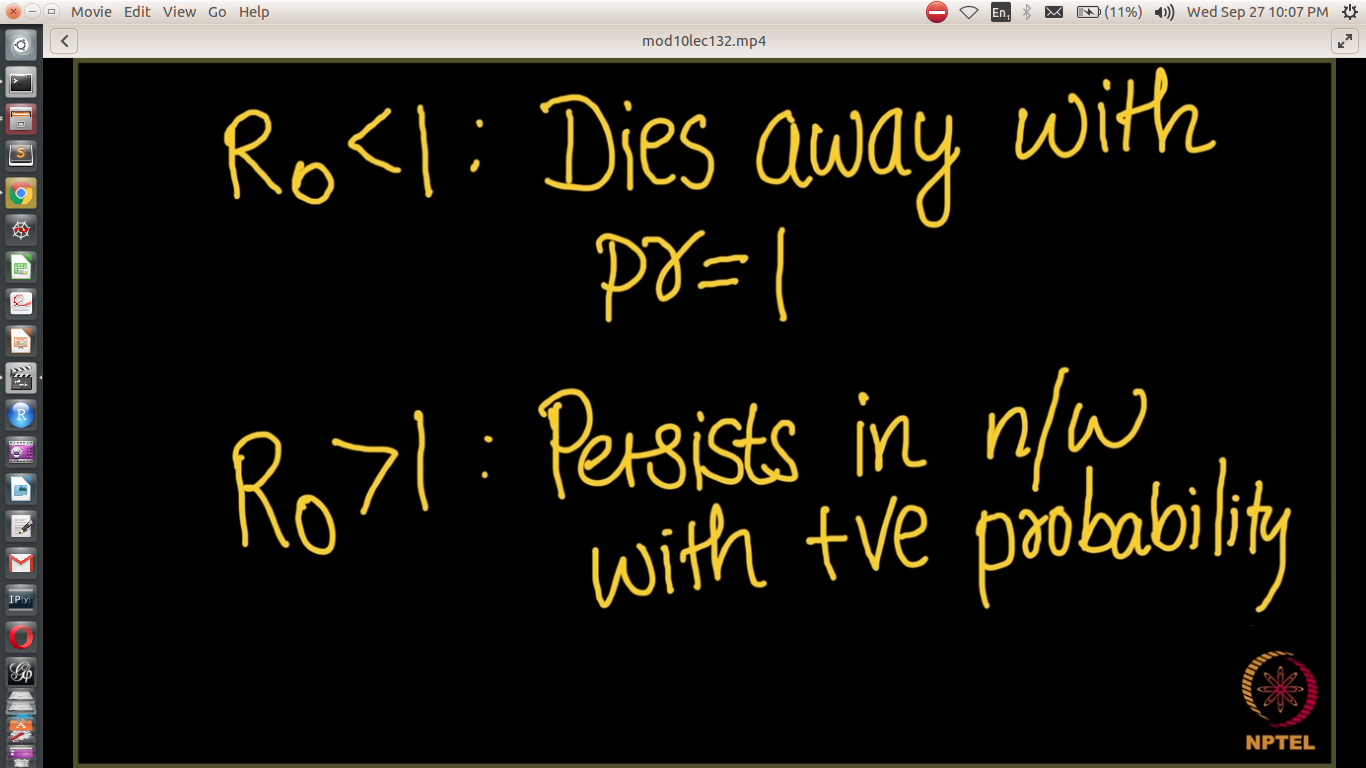 Movie Edit View Go Help
En1 (11%) Wed Sep 27 10:07 PM
mod10lec132.mp4
R0<1 : Dies away with
pr=1
R0>1 : Persists in n/w
with +ve probability
NPTEL